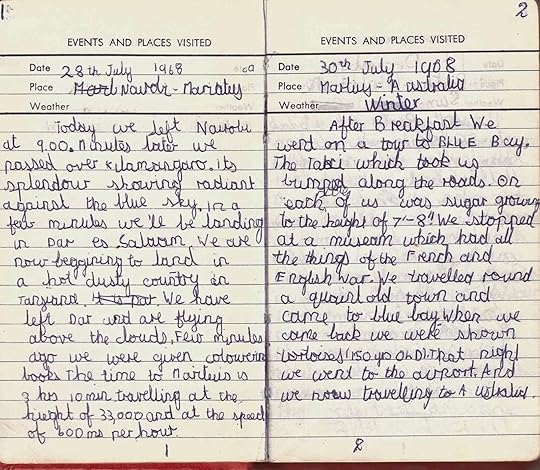 1
EVENTS AND PLACES VISITED
Date 28th July 1968
Place Nairobi - Mariatus
Weather
Today we left Nairobi
at 9.00. Minutes later we
passed over Kilamangaro. Its
splendour showing radiant
against the blue sky. In a
few minutes we'll be landing
in Dar es Salaam. We are
now beggning to land in
a hot dusty country in
Tanzania. We have
left Dar and are flying
above the clouds. Few minutes
ago we were given colouring
books. The time to Martuis is
3 hrs 10 min travelling at the
hieght of 33,000 and at the speed
of 600 ms per hour.
1
2
EVENTS AND PLACES VISITED
Date 30th July 1968
Place Martius - Australia
Weather Winter
After Breakfast We
went on a tour to BLUE Bay.
The Taxi which took us
bumped along the roads. On
each side of us was sugar growing
to the height of 7'-8". We stopped
at a museam which had all
the things of the French and
English War. We travelled round
a quaint old town and
came to blue bay. When we
came back we were shown
tortoises (150 yos OLD). That night
we went to the airport. And
we now travelling to Australia.
2